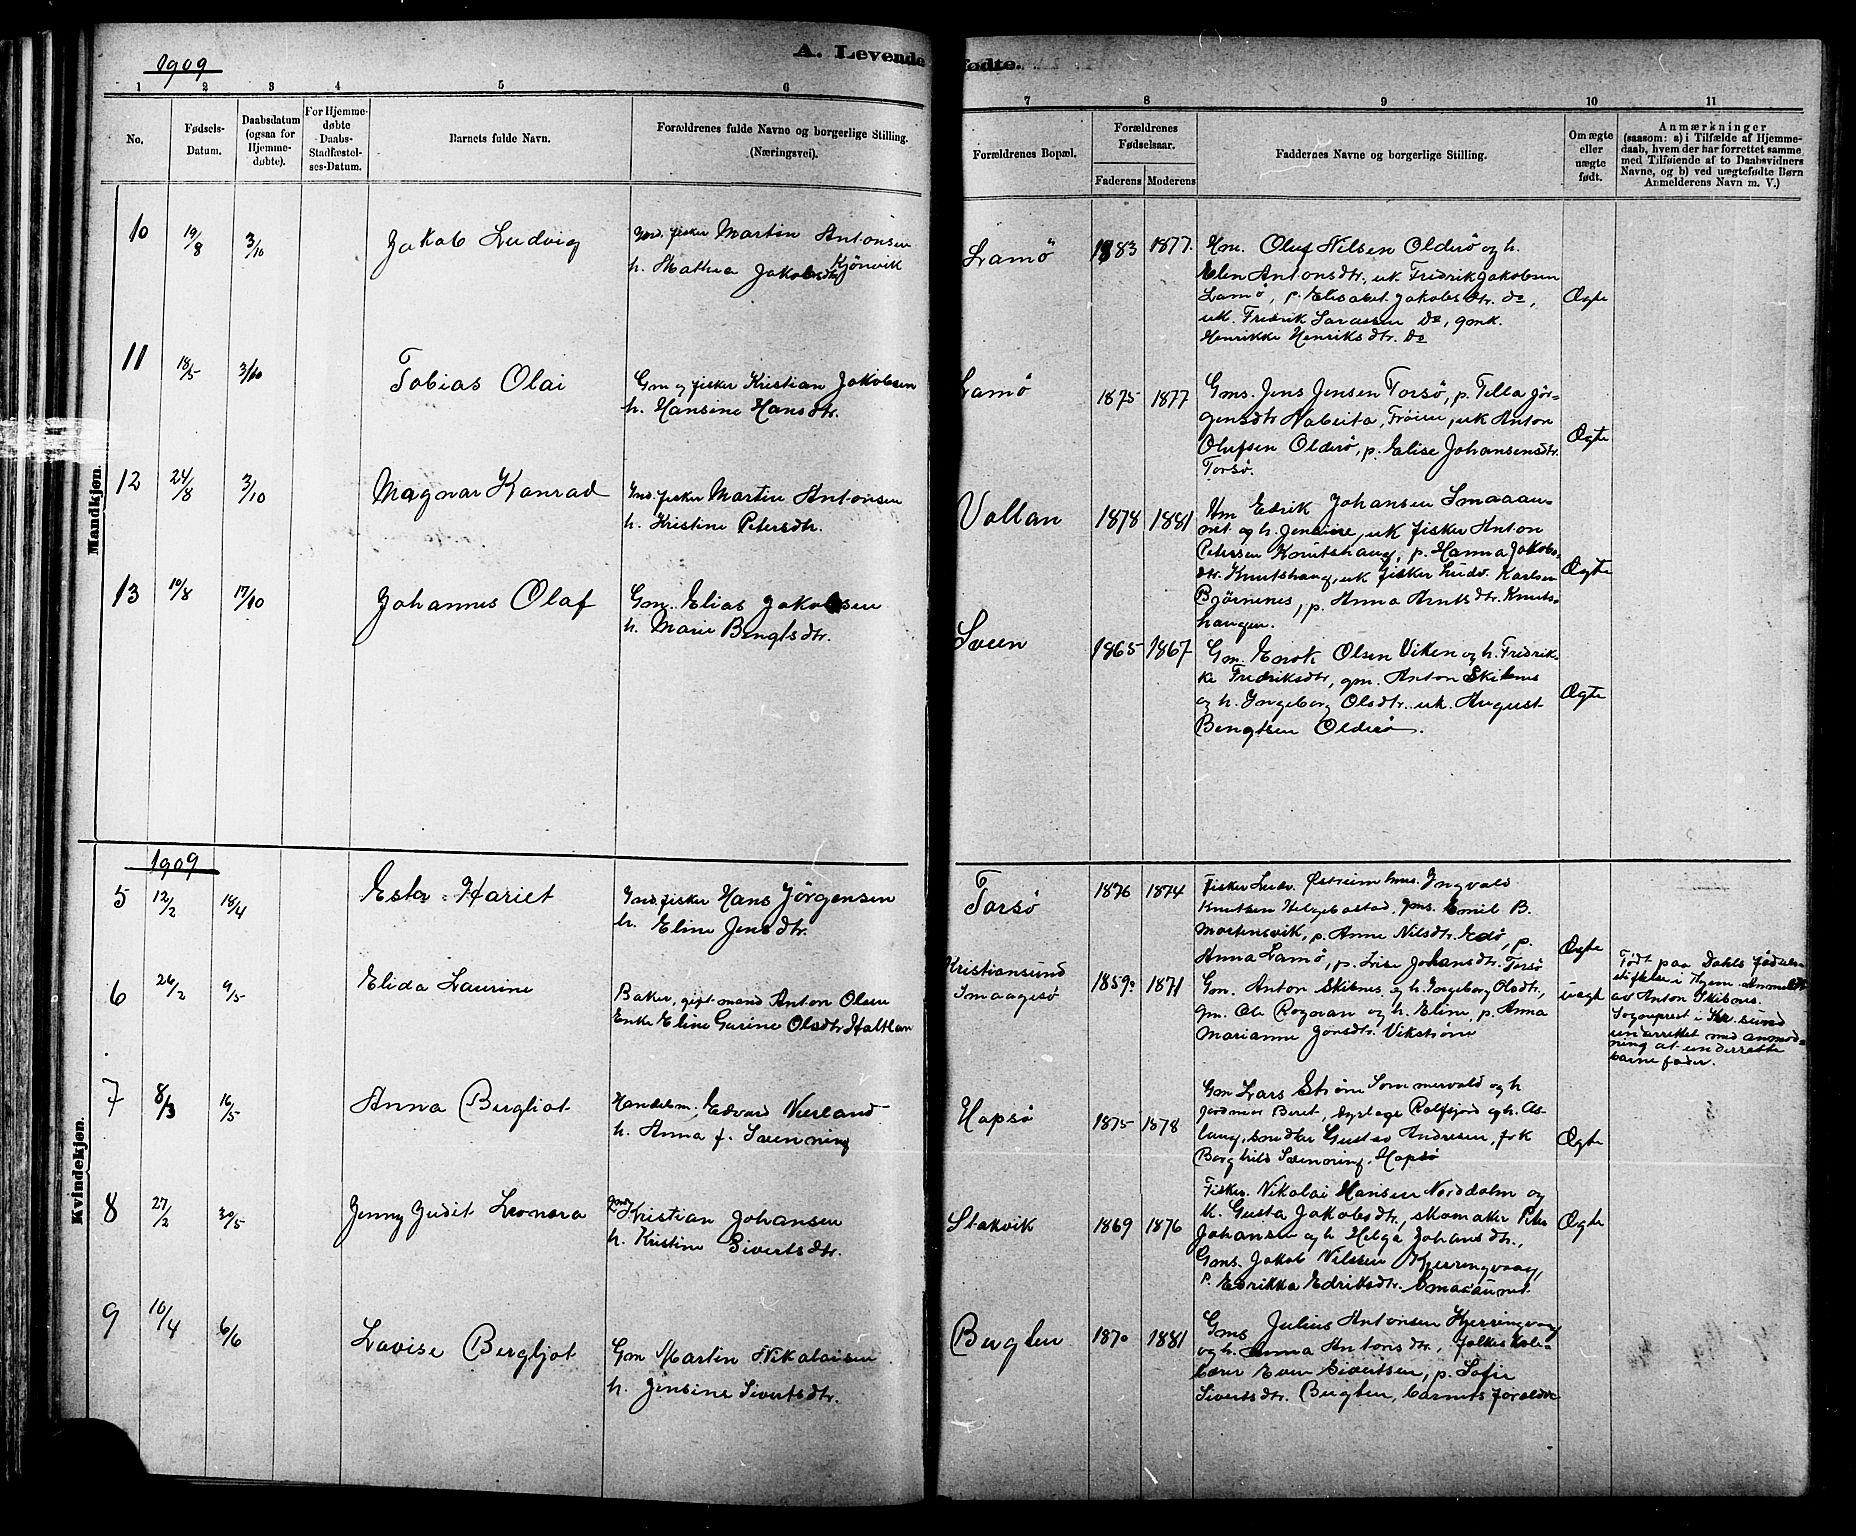 1909
A. Levende fødte.
1 2 3 4 5 6 7 8 9 10 11
No.
Fødsels-
Datum.
Daabsdatum
(ogsaa for
Hjemme-
døbte).
For Hjemme-
døbte
Daabs-
Stadfæstel-
ses-Datum.
Barnets fulde Navn.
Forældrenes fulde Navne og borgerlige Stilling.
(Næringsvei).
Forældrenes Bopæl.
Forældrenes
Fødselsaar.
Faderens Moderens
Faddernes Navne og borgerlige Stilling.
Om ægte
eller
uægte
født.
Anmærkninger
(saasom: a) i Tilfælde af Hjemme-
daab, hvem der har forrettet samme
med Tilføiende af to Daabsvidners
Navne, og b) ved uægtefødte Børn
Anmelderens Navn m. V.)
Mandkjøn.
10 19/8 3/10 Jakob Ludvig
Ind. fisker Martin Antonsen
h. Mathea Jakobsdtr Kjönvik
Lamö 1883 1877.
Hm. Oluf Nilsen Olderö og h.
Elen Antonsdtr., uk. Fredrik Jakobsen
Lamö, p. Elisabet Jakobsdtr. do,
uk. Fredrik Do, gmk.
Henrikke Henriksdtr. Do
Ægte
11 18/5 3/10 Tobias Olai
Gm og fisker Kristian Jakobsen
h. Hansine Hansdtr.
Lamö 1875 1877
Gms. Jens Jensen Torsö, p. Tella Jör-
gensdtr Nabeita, Fröien, uk Anton
Olufsen Olderö, p. Elise Johansensdtr.
Torsö.
Ægte
12 24/8 3/10 Magnar Konrad
Ind. fisker Martin Antonsen
h. Kristine Petersdtr.
Vollan 1878 1881
Edrik Johansen Smaaau-
net og h. Jensine, uk fisker Anton
Petersen Knutshaug, p. Hanna Jakobs-
dtr. Knutshaug, uk fisker Ludv. Karlsen
Björnenes, p. Anna Arntsdtr. Knuts-
haugen.
Ægte
13 10/8 17/10 Johannes Olaf
Gm. Elias Jakobsen
h. Marie Bengtsdtr.
Sveen 1865 1867
Gm. Enok Olsen Viken og h. Fredrik-
ke Fredriksdtr, gm. Anton Skibnes
og h. Ingeborg Olsdtr. uk. August
Bengtsen Olderö.
Ægte
1909
Kvindekjøn.
5 12/2 18/4 Ester Hariet
Ind. fisker Hans Jörgensen
h. Eline Jensdtr.
Torsö 1876 1874
Fisker Ludv. Ingvald
Knutsen Helgebostad, gms. Emil B.
Mortensvik, p. Anne Nilsdtr. Edö, p.
Anna Lamö, p. Lise Johansdtr. Torsö
Ægte
6 26/2 9/5 Elida Laurine
Baker, gift mand Anton Olsen
Enke Eline Gurine Olsdtr Haltlan
Kristiansund
Smaagesö
1859. 1871
Gm. Anton Skibnes og h. Ingeborg Olsdtr,
gm. Ole Rogovan og h. Eline, p. Anna
Marianne Jonsdtr. Vikström
uægt.
Født paa Dahls födsels-
stiftelse i Trhjem. Anmeldt
av Anton Skibnes.
Sogneprest i Kr.sund
underrettet med anmod-
ning at underrette
barnefader.
7 8/3 16/5 Anna Bergliot
Handelsm. Edvard Nerland
h. Anna f. Svenning
Hopsö 1875 1878
Gm Lars Ström Sommervold og h
jordmor Beret, Rolfsjord og h. As-
laug, Gustav Andresen, frk
Borghild Svenning, Hopsö
Ægte
8 27/2 30/5 Jenny Judit Leonora
Kristian Johansen
h. Kristine Sivertsdtr.
Stakvik 1869 1876
Fisker. Nikolai Hansen Norddalm og
h. Gusta Jakobsdtr., skomaker Peter
Johansen og h Helga Johansdtr.,
Gms. Jakob Nilssen Kjerringvaag,
p. Edrikka Edriksdtr. Smaaaunet.
Ægte
9 10/4 6/6 Lovise Bergljot
Gm Martin Nikolaisen
h. Jensine Sivertsdtr.
Bergten 1870 1881
Gms Julius Antonsen Kjerringvaag
og h. Anna Antonsdtr., folkeskole-
lærer Even Sivertsen, p. Sofie
Sivertsdtr. Bergten, barnets foreldre